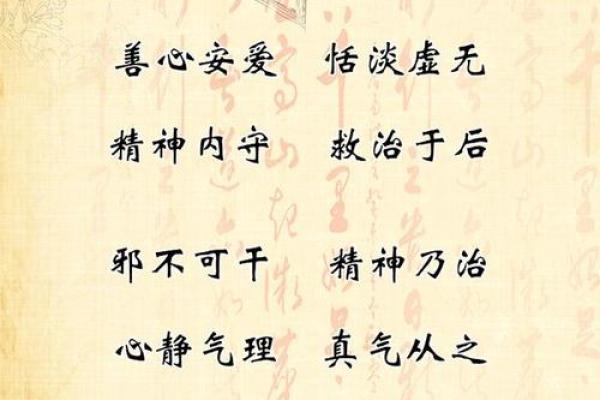 善心安爱 恬淡虚无
精神内守 救治于后
邪不可干 精神乃治
心静气理 真气从之